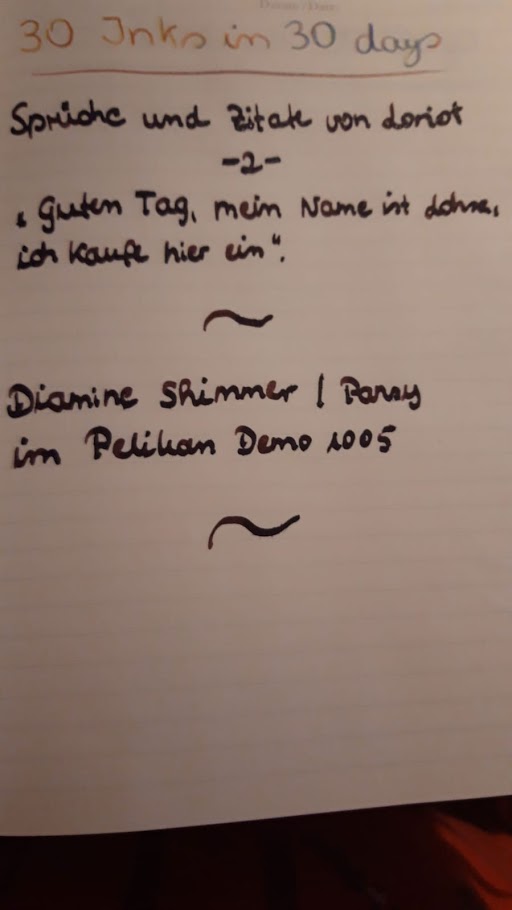 30 Inks in 30 days
Sprüche und Zitate von Loriot
-2-
„Guten Tag, mein Name ist Lohse,
ich kaufe hier ein“.
Diamine Shimmer / 
im Pelikan Demo 1005